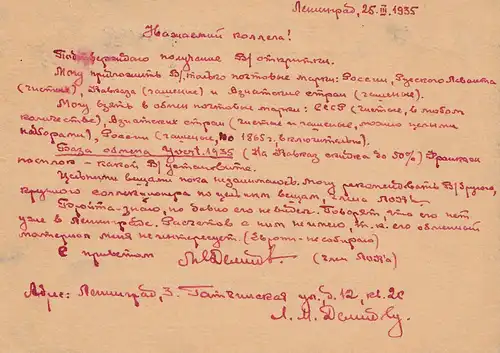 Ленинград, 25/III 1935
Уважаемый коллега!
Подтверждаю получение В/открытки.
Могу предложить В/только почтовые марки: России, Русского Леванта
(чистые), Кавказа (гашеные) и Азиатских стран (гашеные).
Могу взять в обмен почтовые марки: СССР (чистые, в любом
количестве), Азиатских стран (чистые и гашеные, можно целыми
наборами), России (гашеные, по 1865г. включительно)
База обмена Yvert 1935 (На Кавказ скидка до 50%)
послов - какой В/установите.
Цельными вещами пока не занимаюсь. Могу рекомендовать В/другого,
крупного коллекционера по цельным вещам, члена
знаю, но давно его не видел. Говорят, что его нет
уже в Ленинграде. Расчетов с ним не имею, т.к. его обменный
материал меня не интересует. (Европ - не собираю)
С приветом (член
Адрес: Ленинград, 3. Гатчинская ул., д. 12, кв. 26
Л. М. Демидову.